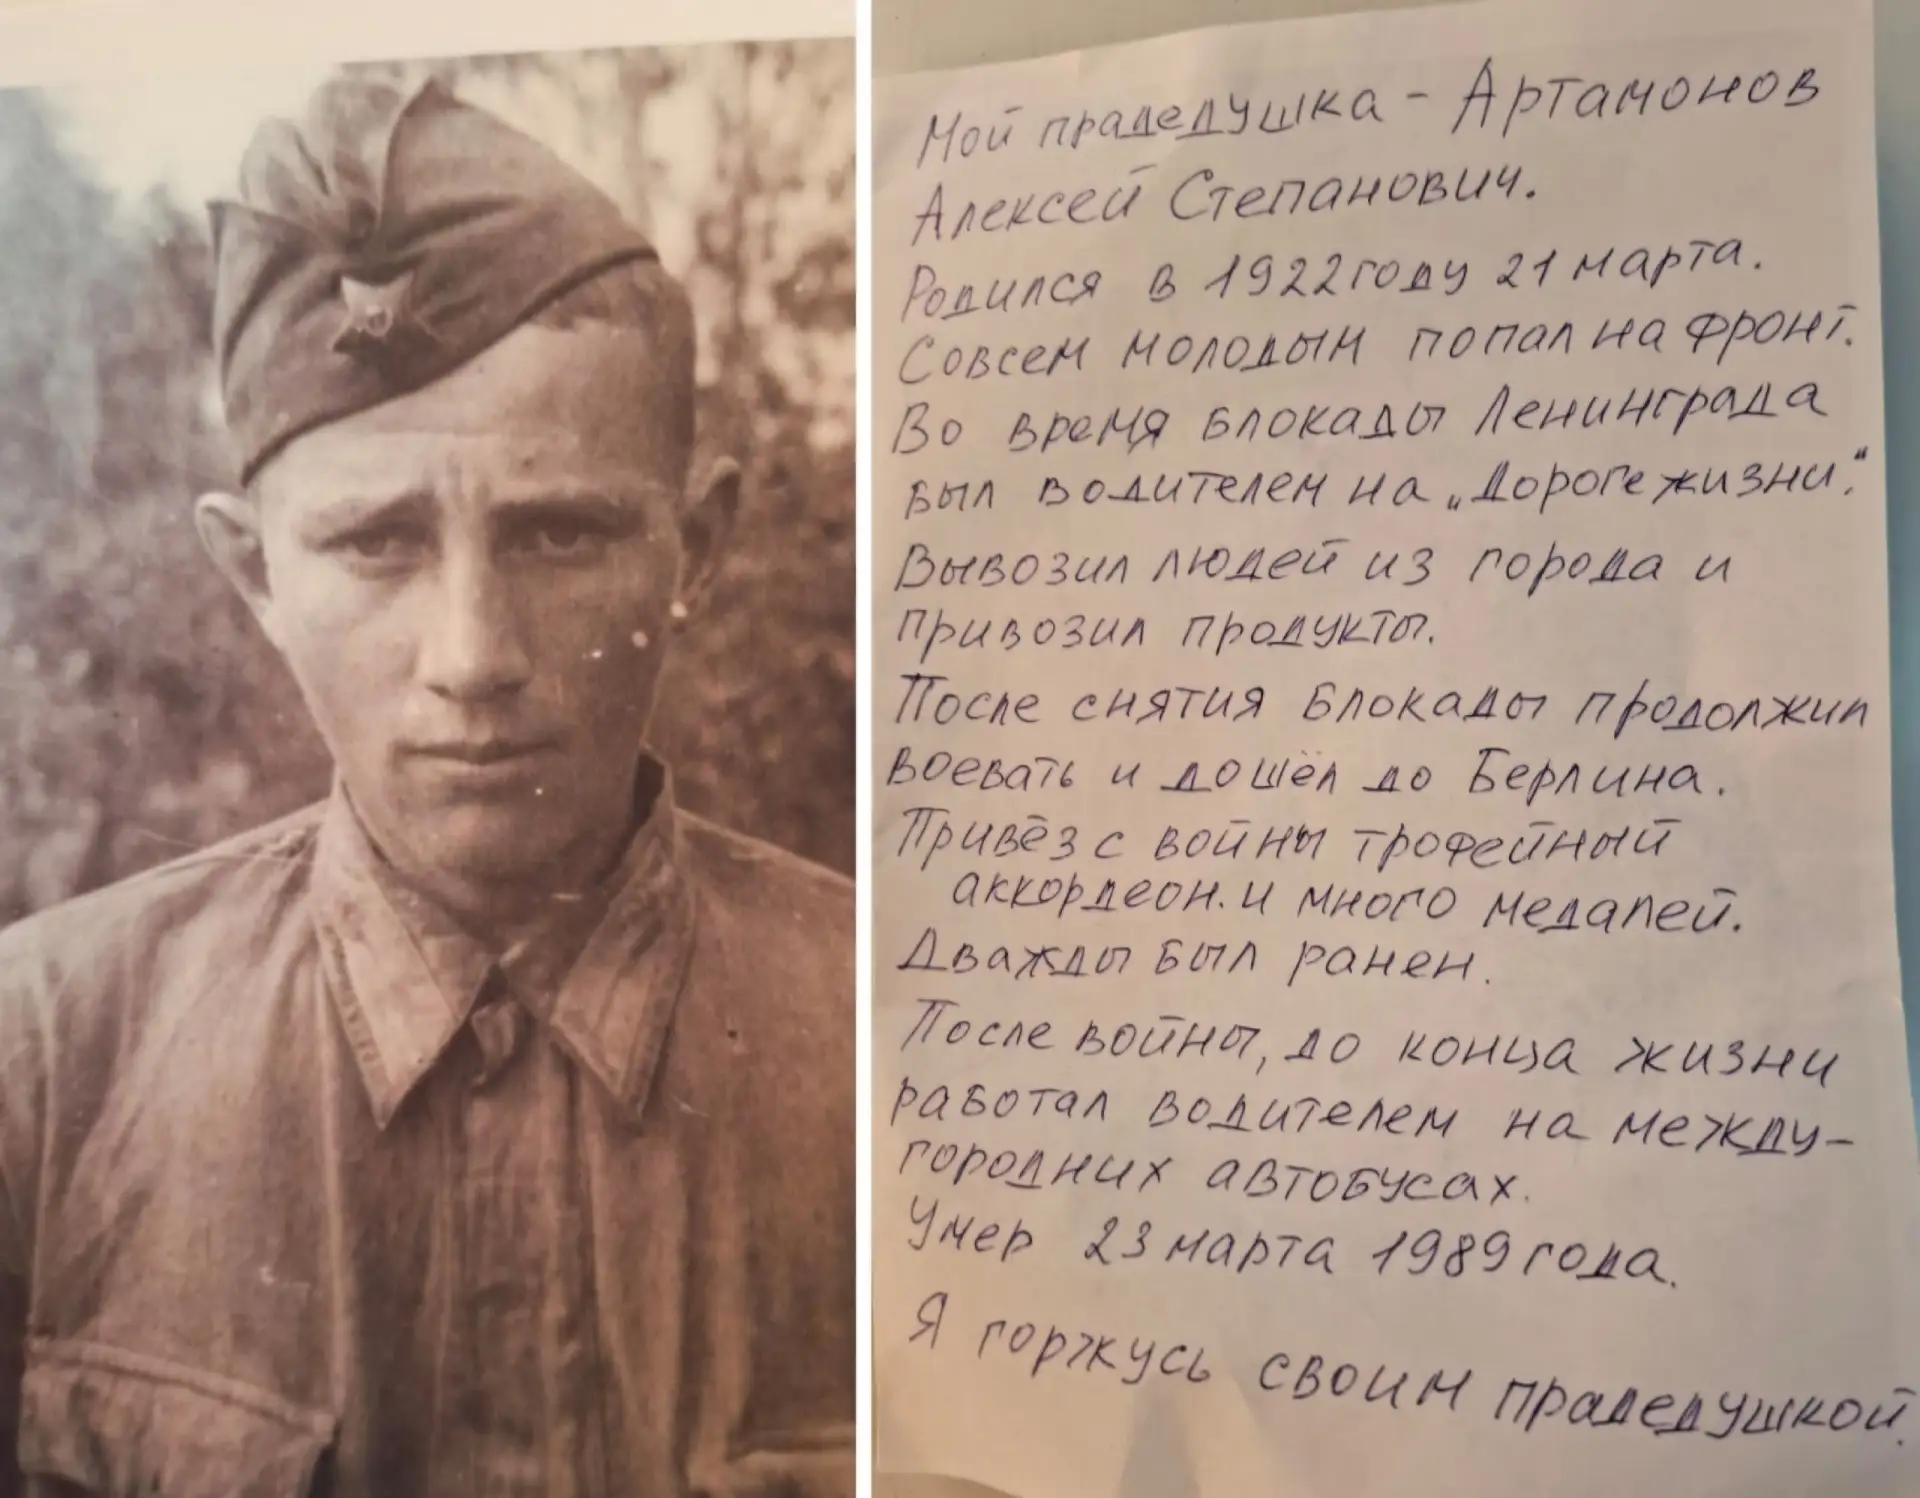 Мой прадедушка - Артамонов
Алексей Степанович.
Родился в 1922 году 21 марта.
Совсем молодым попал на фронт.
Во время блокады Ленинграда
был водителем на „Дороге жизни“.
Вывозил людей из города и
привозил продукты.
После снятия блокады продолжил
воевать и дошёл до Берлина.
Привёз с войны трофейный
аккордеон. и много медалей.
Дважды был ранен.
После войны, до конца жизни
работал водителем на между-
городних автобусах.
Умер 23 марта 1989 года.
Я горжусь своим прадедушкой.